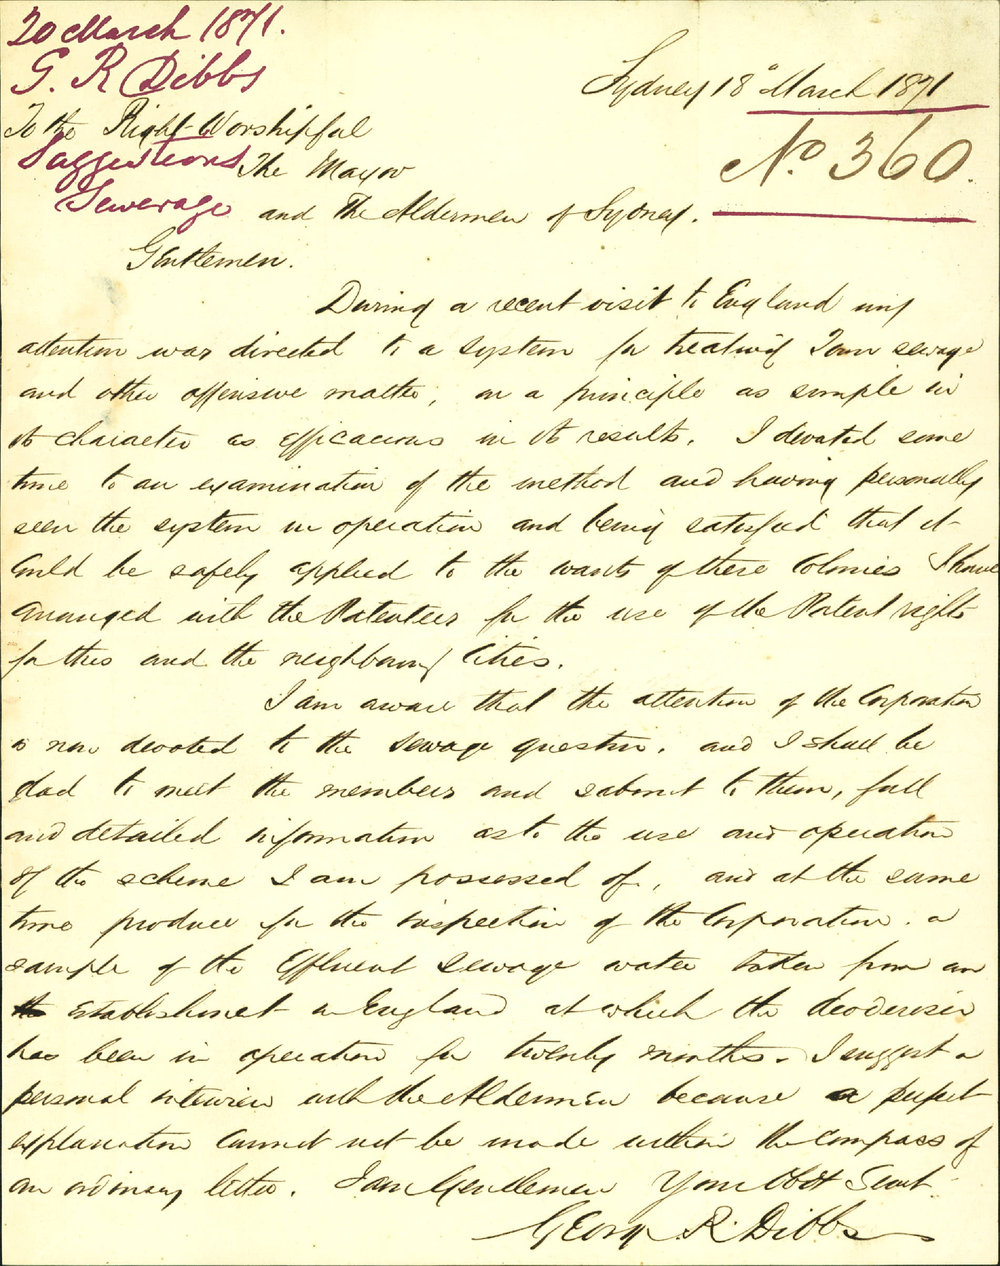 20 March 1871.
G. R Dibbs
Sydney 18° March 1871
To the Right Worshipful
No. 360.
Suggestions
The Mayor
Sewerage
and the Aldermen of Sydney.
Gentlemen.
During a recent visit to England my
attention was directed to a system for treating Town sewage
and other offensive matter, on a principle as simple in
its character as efficacious in its results. I devoted some
time to an examination of the method and having personally
seen the system in operation and being satisfied that it
could be safely applied to the wants of these Colonies I have
arranged with the Patentees for the use of the Patent rights
for this and the neighbouring Cities.
I am aware that the attention of the Corporation
is now devoted to the Sewage question, and I shall be
glad to meet the members and submit to them, full
and detailed information as to the use and operation
of the scheme I am possessed of, and at the same
time produce for the inspection of the Corporation. a
sample of the Effluent Sewage water taken from an
the Establishment in England at which the deoderiser
has been in operation for twenty months. I suggest a
personal interview with the Aldermen because a perfect
explanation cannot be made within the compass of
an ordinary letter. I am Gentlemen Your Obdt Servt
George R. Dibbs